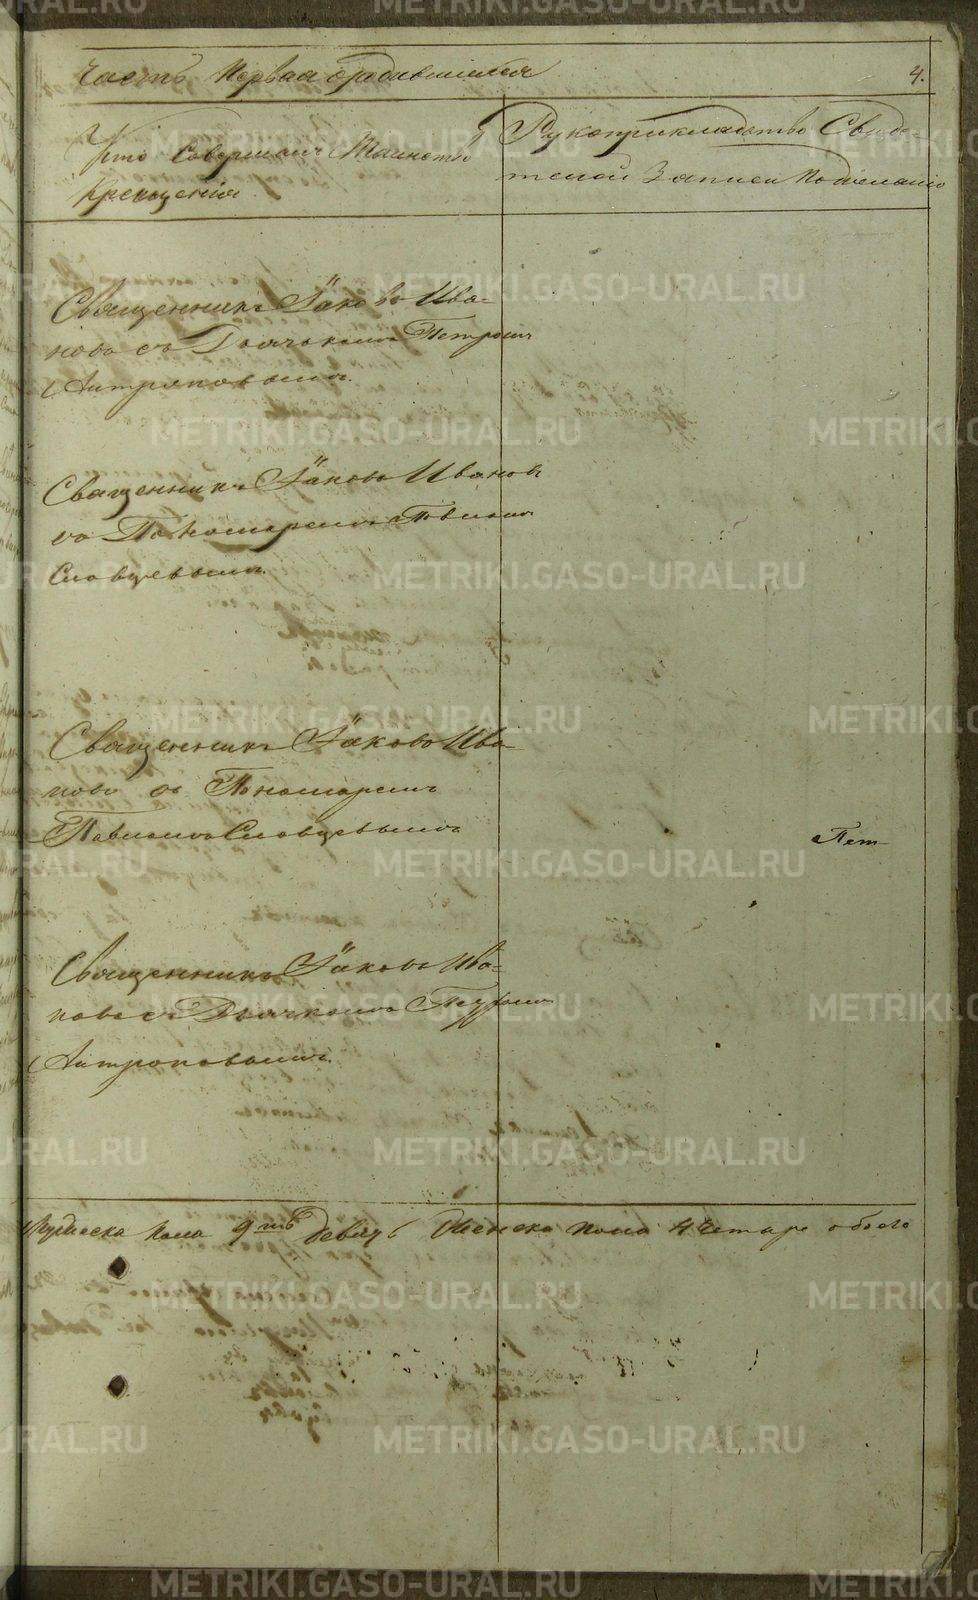 Часть Первая о родившихся
4.
Кто Совершалъ Таинство
Крещенія
Рукоприкладство Свиде-
телей Записи По желанію
Священникъ Іаковъ Ива-
новъ съ Дьячкомъ Петромъ
Антроповымъ.
Священникъ Іаковъ Ивановъ
съ Пономаремъ Павломъ
Словцевымъ.
Священникъ Іаковъ Ива-
новъ съ Пономаремъ
Павломъ Словцевымъ
Пет
Священникъ Іаковъ Ива-
новъ съ Дьячкомъ Петромъ
Антроповымъ.
Мужеска пола 9ть девять Женска пола 4 четыре обоего
METRIKI.GASO-URAL.RU